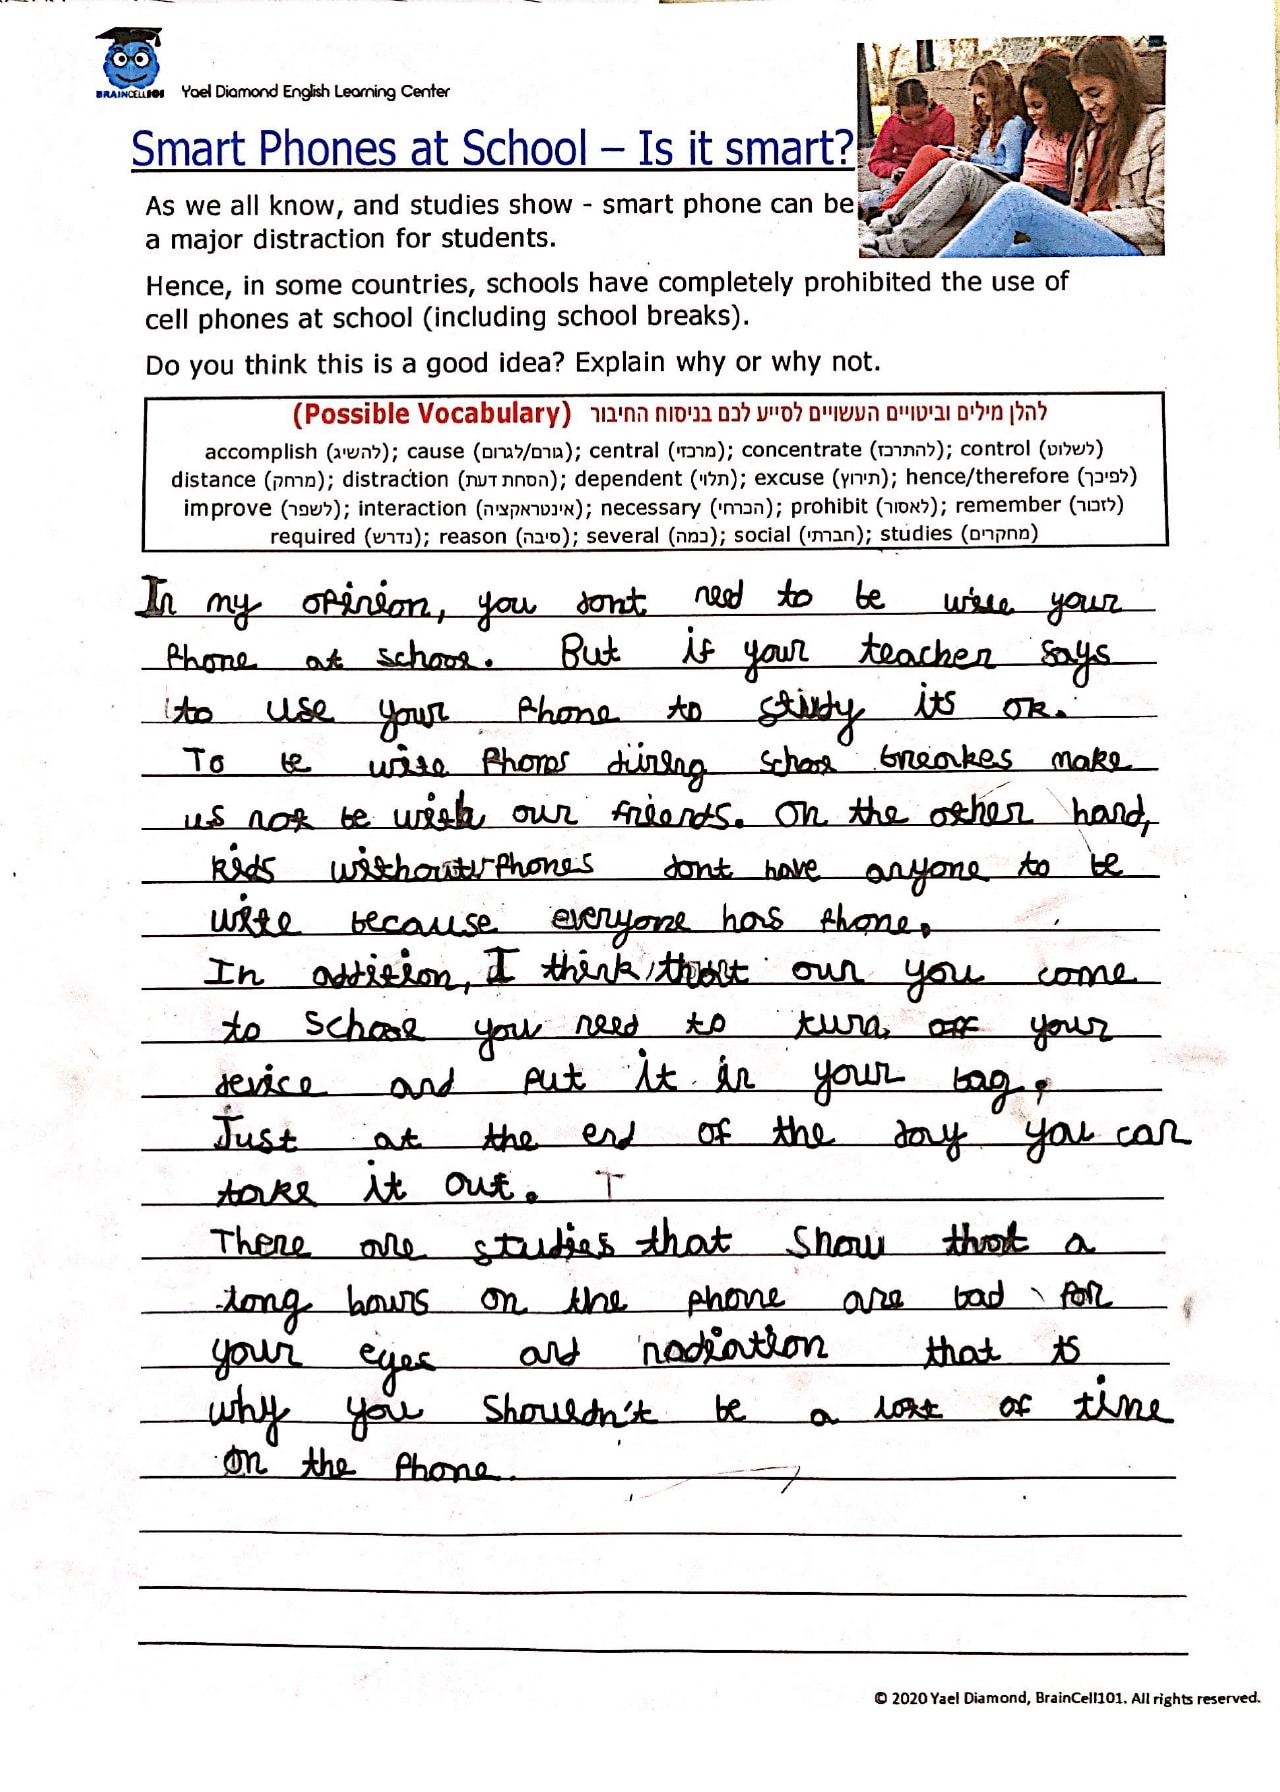 BRAINCELL101 Yael Diamond English Learning Center
Smart Phones at School – Is it smart?
As we all know, and studies show - smart phone can be
a major distraction for students.
Hence, in some countries, schools have completely prohibited the use of
cell phones at school (including school breaks).
Do you think this is a good idea? Explain why or why not.
להלן מילים וביטויים העשויים לסייע לכם בניסוח החיבור (Possible Vocabulary)
accomplish (להשיג); cause (גורם/לגרום); central (מרכזי); concentrate (להתרכז); control (לשלוט)
distance (מרחק); distraction (הסחת דעת); dependent (תלוי); excuse (תירוץ); hence/therefore (לפיכך)
improve (לשפר); interaction (אינטראקציה); necessary (הכרחי); prohibit (לאסור); remember (לזכור)
required (נדרש); reason (סיבה); several (כמה); social (חברתי); studies (מחקרים)
In my opinion, you dont need to be wite your
Phone at school. But if your teacher says
to use your Phone to study its ok.
To be wite Phones during school breakes make
us not be with our friends. On the other hand,
kids without Phones dont have anyone to be
wite because everyone has Phone.
In addition, I think that our you come
to school you need to turn off your
device and put it in your bag.
Just at the end of the day you can
take it out. T
There are studies that show that a
long hours on the phone are bad for
your eyes and radiation that is
why you shouldn't be a lot of time
on the Phone.
© 2020 Yael Diamond, BrainCell101. All rights reserved.